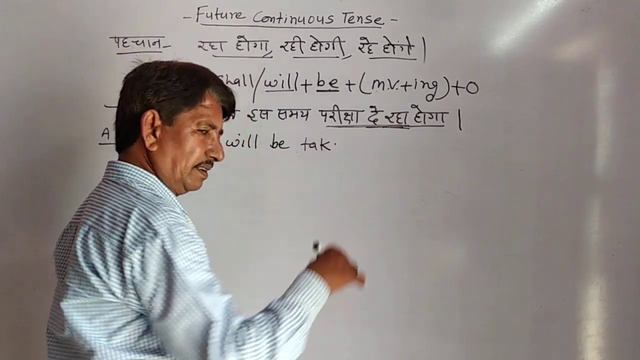 - Future Continuous Tense -
पहचान - रहा होगा, रही होगी, रहे होंगे |
shall/will + be + (m.v. + ing) + O
इस समय परीक्षा दे रहा होगा |
A
will be tak.